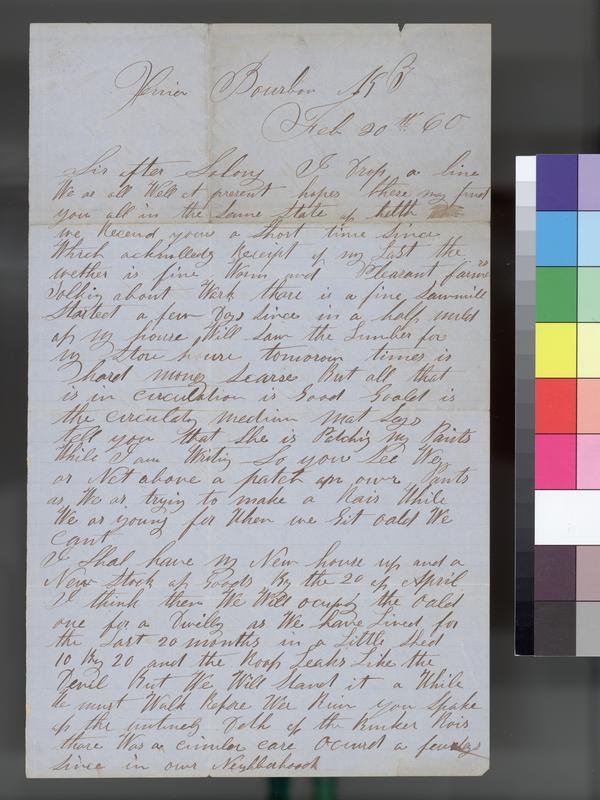 Xenia Bourbon K T
Feb 20th 60
Sir after Solong I Drop a line
We as all Well at present hopes these may find
you all in the Same State of helth
we Recend yours a Short time Since
Which acknolledg Receipt of my Last the
wether is fine Warm and Pleasant farmers
Talkig about Werk there is a fine Sawmill
Started a few Days Since in a half mild
of my house Will Saw the Lumber for
my Store house tomorow times is
hard money Scarse But all that
is in circulation is Good Goald is
the circulatig medium Mat Seys
tell you that She is Patchig my Pants
While I am Writig So you See We
ar Not above a patch upn our Pants
as We ar trying to make a Rais While
We ar young for When we Git oald We
cant
I Shal have my New house up and a
New Stock of Goods By the 20 of April
I think then We Will ocupy the oald
one for a Dwellig as We have Lived for
the Last 20 months in a Little Shed
10 By 20 and the Roof Leaks Like the
Devil But We Will Stand it a While
We must Walk Before We Run you Spoke
of the untimely Deth of the Runker Bois
there Was a cimiler case Ocurd a few days
Since in our Neighborhood